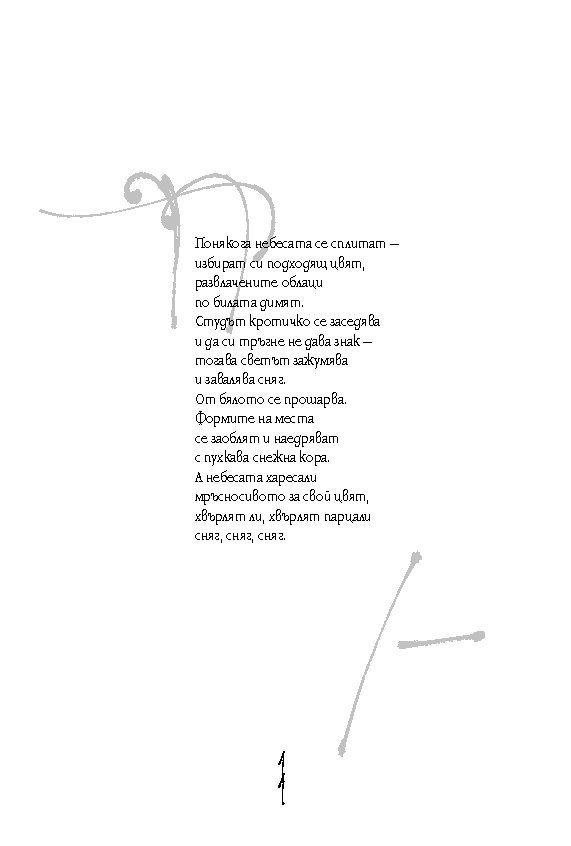 Понякога небесата се сплитат –
избират си подходящ цвят,
развлачените облаци
по билата димят.
Студът кротичко се заседява
и да си тръгне не дава знак –
тогава светът зажумява
и завалява сняг.
От бялото се прошарва.
Формите на места
се заоблят и наедряват
с пухкава снежна кора.
А небесата харесали
мръсносивото за свой цвят,
хвърлят ли, хвърлят парцали
сняг, сняг, сняг.